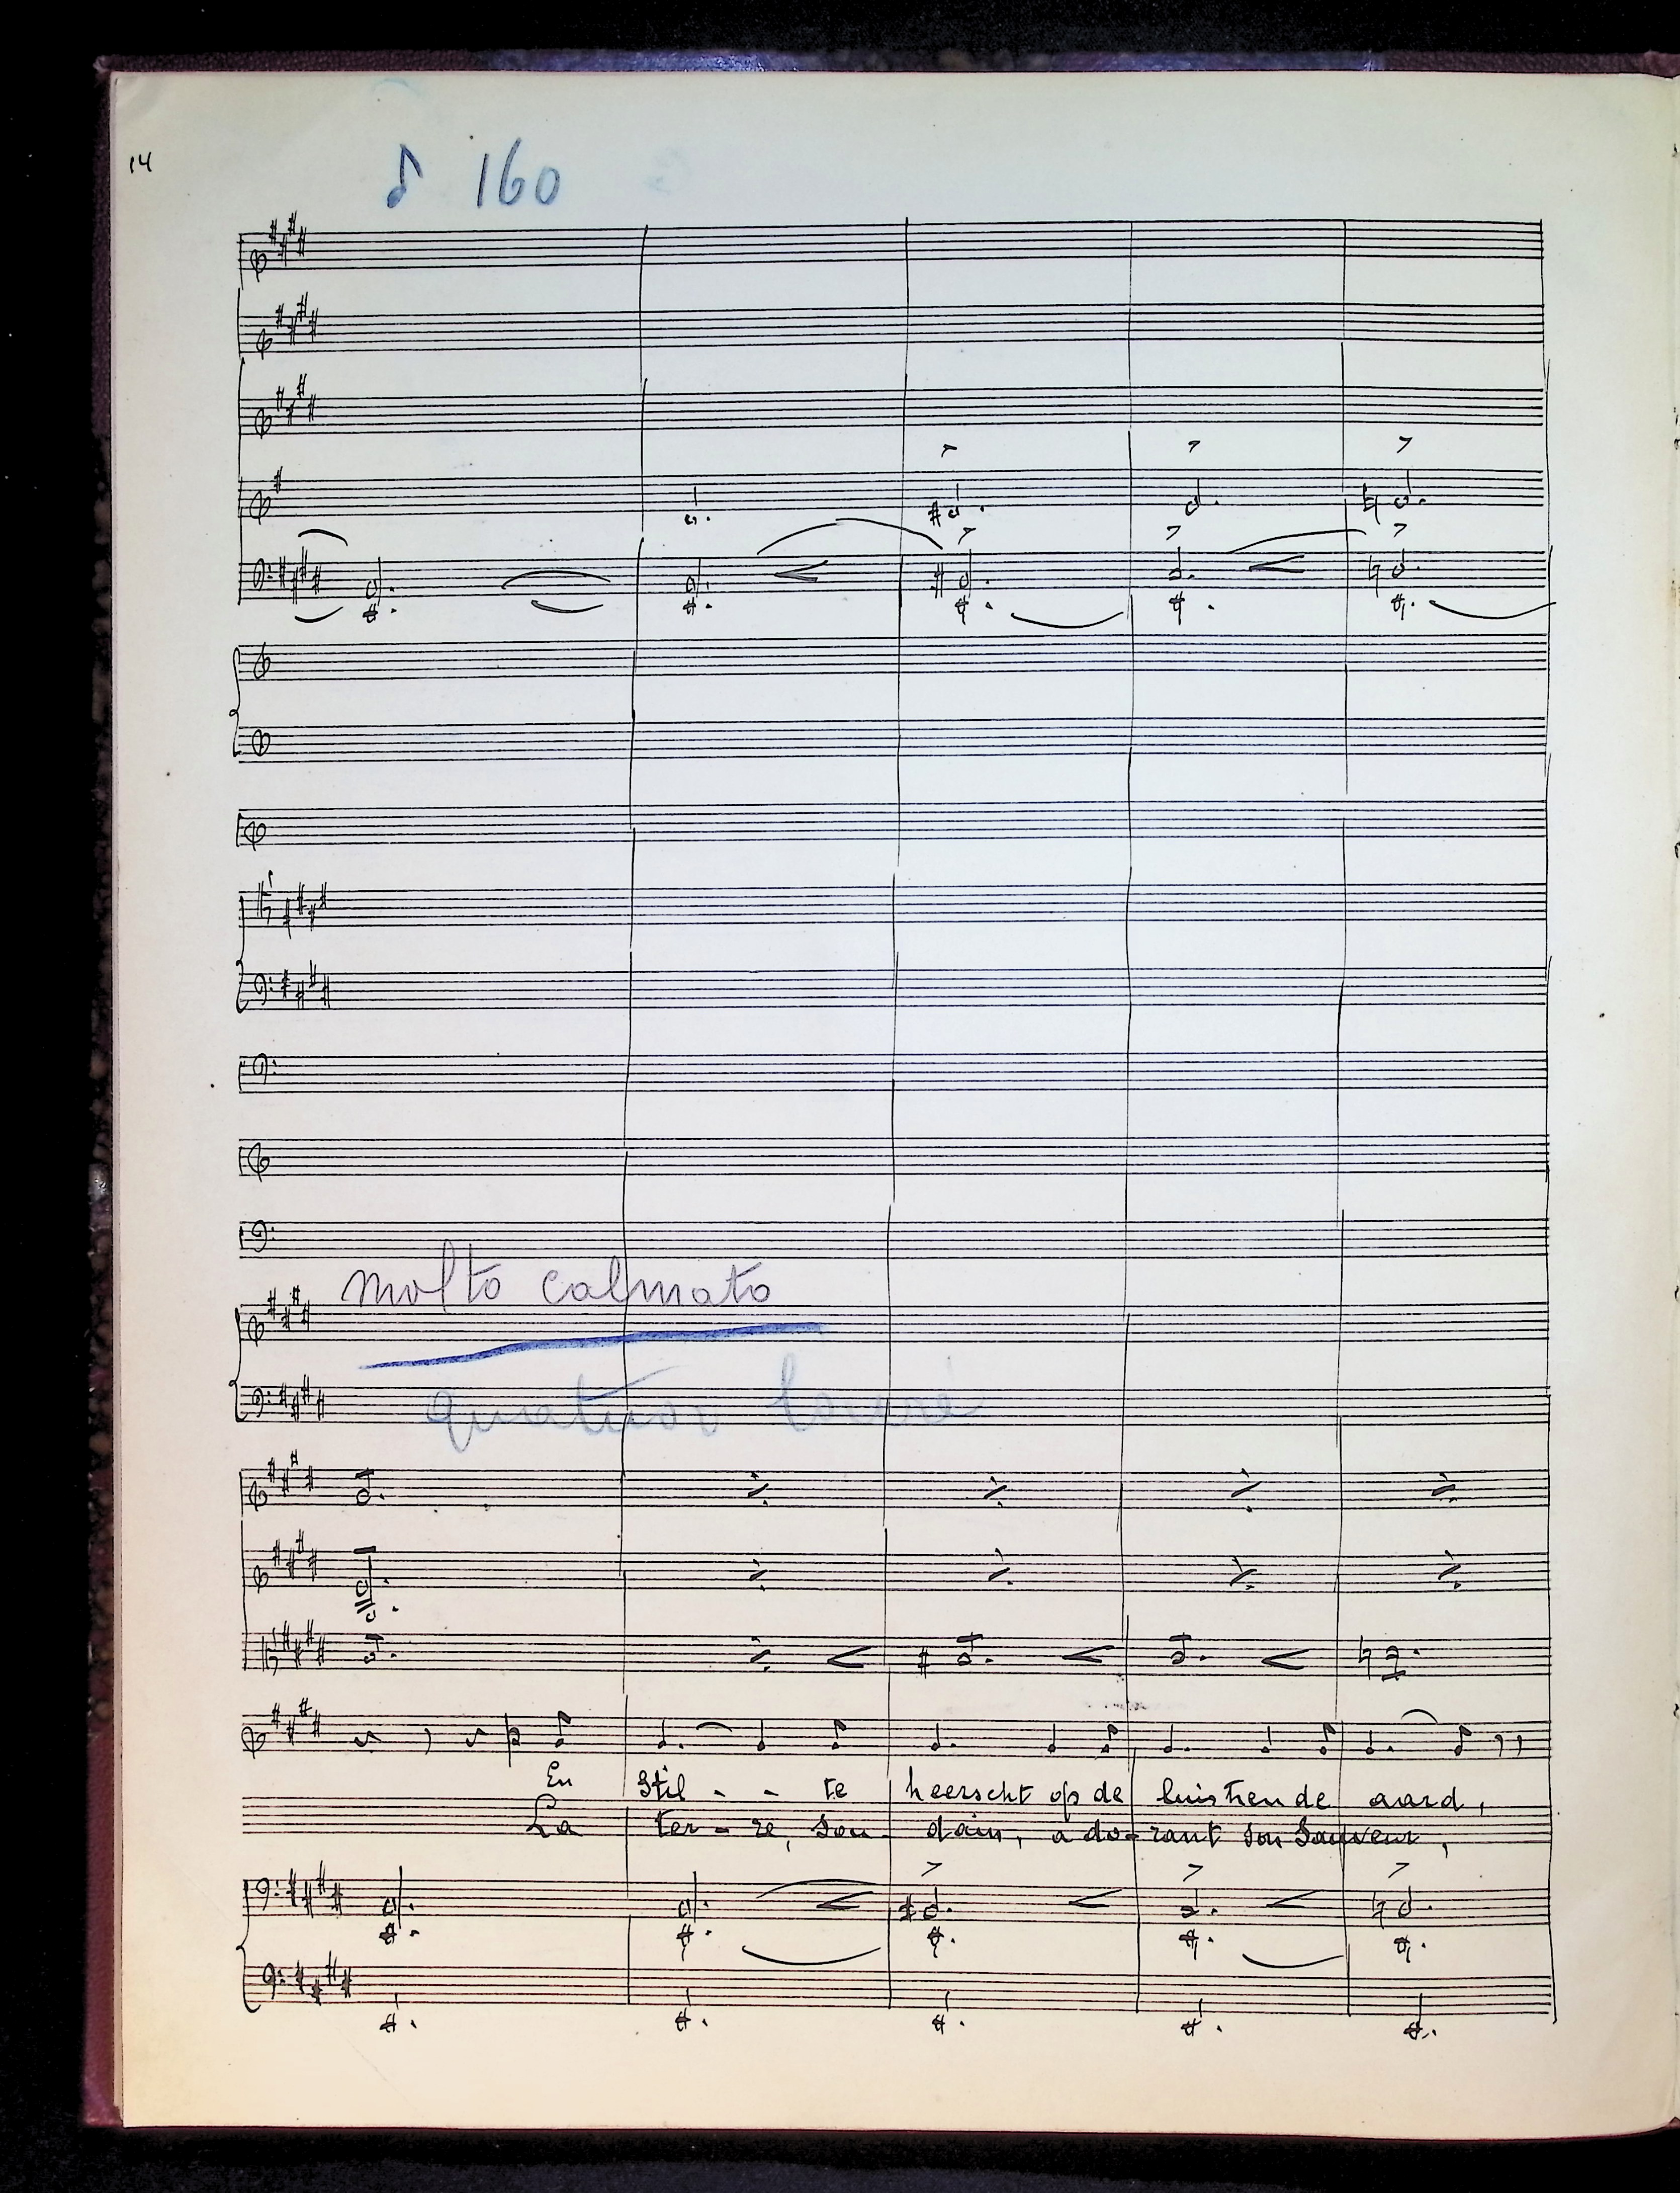 14
♪ 160
molto calmato
quatuor
En Stil - - te heerscht op de luistren de aard,
La ter - re, sou - dain, a do - rant son Sauveur,